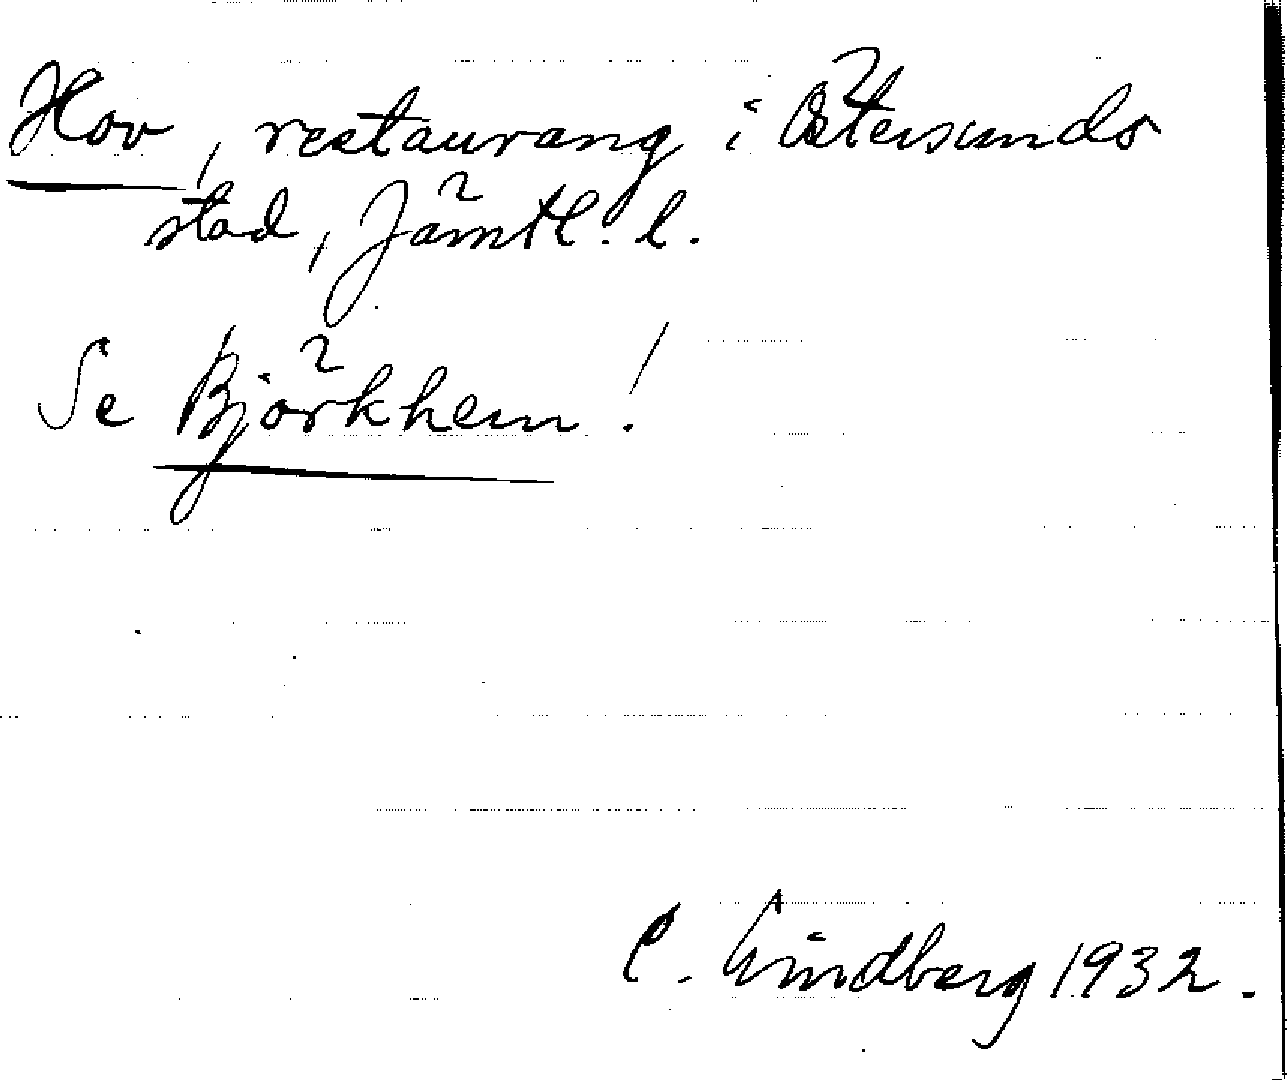 Hov, restaurang i Östersunds
stad, Jämtl. l.
Se Björkhem!
C. Lindberg 1932.